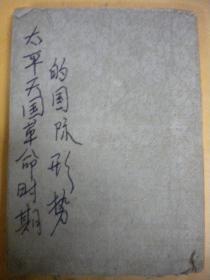 太平天国革命时期
的国际形势